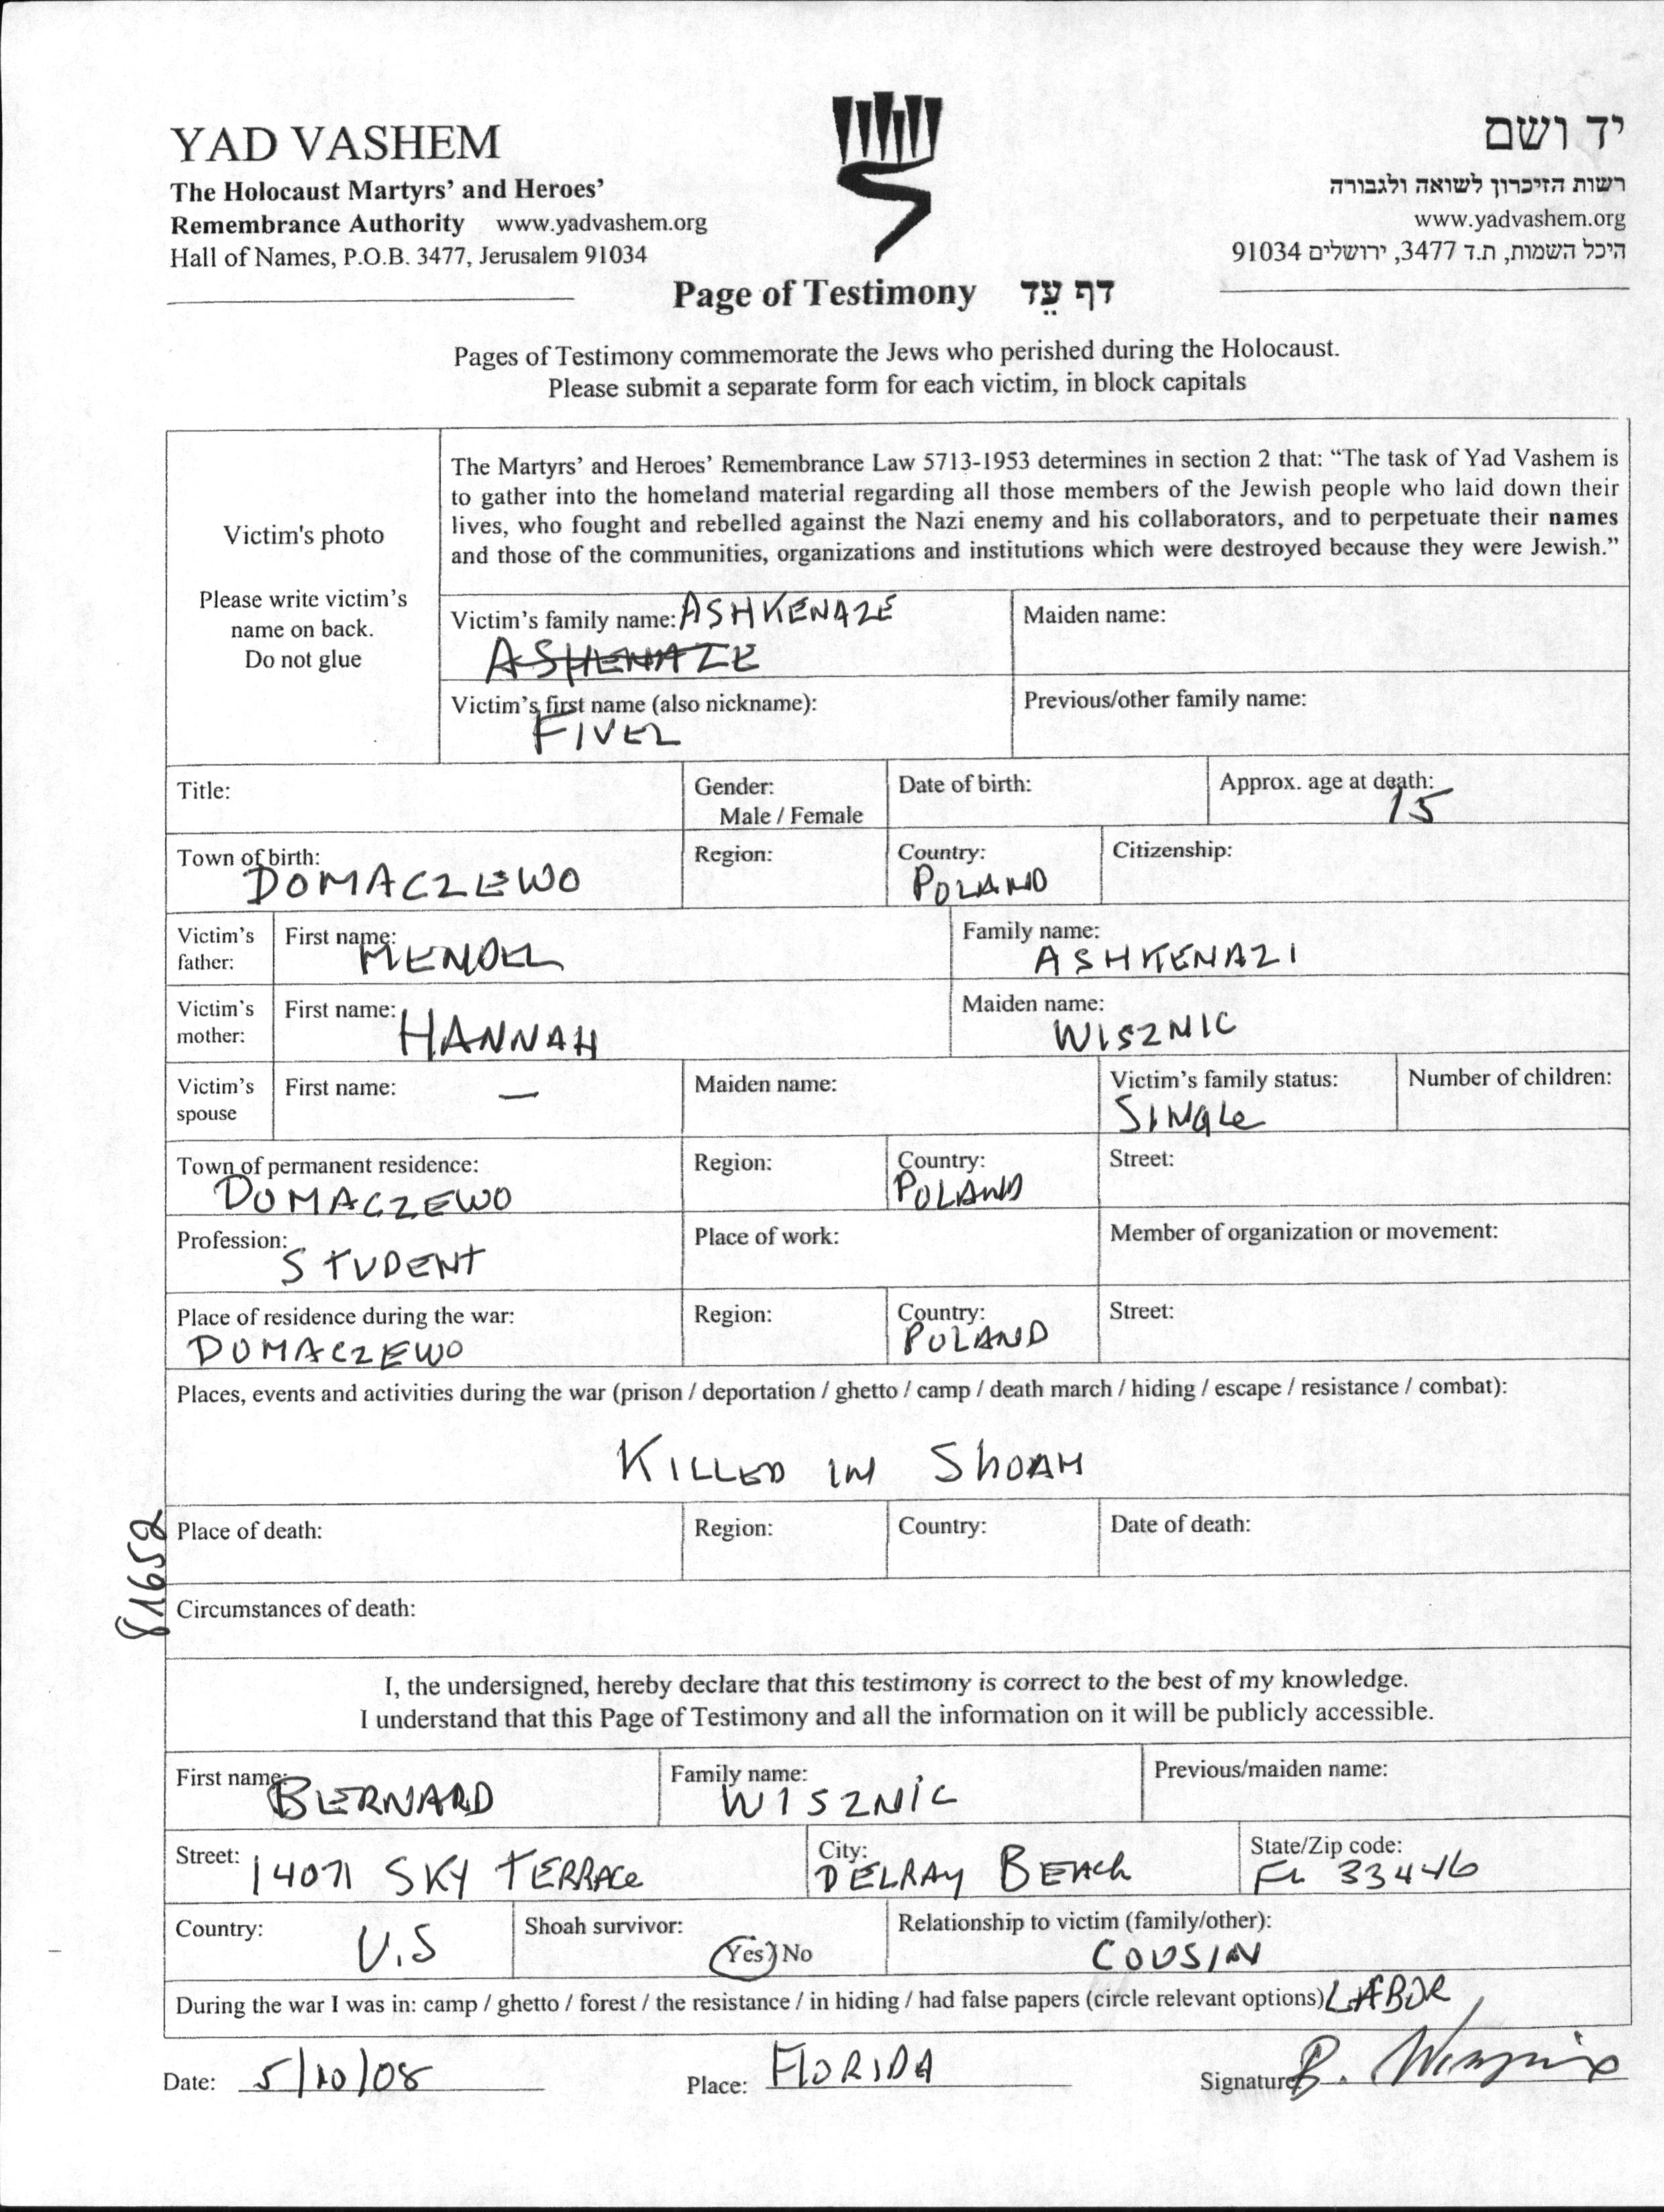 YAD VASHEM
The Holocaust Martyrs' and Heroes'
Remembrance Authority www.yadvashem.org
Hall of Names, P.O.B. 3477, Jerusalem 91034
יד ושם
רשות הזיכרון לשואה ולגבורה
www.yadvashem.org
היכל השמות, ת.ד 3477, ירושלים 91034
Page of Testimony דף עֵד
Pages of Testimony commemorate the Jews who perished during the Holocaust.
Please submit a separate form for each victim, in block capitals
Victim's photo
Please write victim's
name on back.
Do not glue
The Martyrs' and Heroes' Remembrance Law 5713-1953 determines in section 2 that: "The task of Yad Vashem is
to gather into the homeland material regarding all those members of the Jewish people who laid down their
lives, who fought and rebelled against the Nazi enemy and his collaborators, and to perpetuate their names
and those of the communities, organizations and institutions which were destroyed because they were Jewish."
Victim's family name: ASHKENAZE
Maiden name:
Victim's first name (also nickname):
FIVEL
Previous/other family name:
Title:
Gender:
Male / Female
Date of birth:
Approx. age at death:
15
Town of birth:
DOMACZEWO
Region:
Country:
POLAND
Citizenship:
Victim's
father:
First name:
MENDEL
Family name:
ASHKENAZI
Victim's
mother:
First name:
HANNAH
Maiden name:
WISZNIC
Victim's
spouse
First name: —
Maiden name:
Victim's family status:
SINGLe
Number of children:
Town of permanent residence:
DOMACZEWO
Region:
Country:
POLAND
Street:
Profession:
STUDENT
Place of work:
Member of organization or movement:
Place of residence during the war:
DOMACZEWO
Region:
Country:
POLAND
Street:
Places, events and activities during the war (prison / deportation / ghetto / camp / death march / hiding / escape / resistance / combat):
KILLED IN ShOAH
81652
Place of death:
Region:
Country:
Date of death:
Circumstances of death:
I, the undersigned, hereby declare that this testimony is correct to the best of my knowledge.
I understand that this Page of Testimony and all the information on it will be publicly accessible.
First name:
BERNARD
Family name:
WISZNIC
Previous/maiden name:
Street: 14071 SKY TERRACe
City:
DELRAY BEACh
State/Zip code:
FL 33446
Country: U.S
Shoah survivor:
Yes / No
Relationship to victim (family/other):
COUSIN
During the war I was in: camp / ghetto / forest / the resistance / in hiding / had false papers (circle relevant options) LABOR
Date: 5/10/08
Place: FLORIDA
Signature: B.